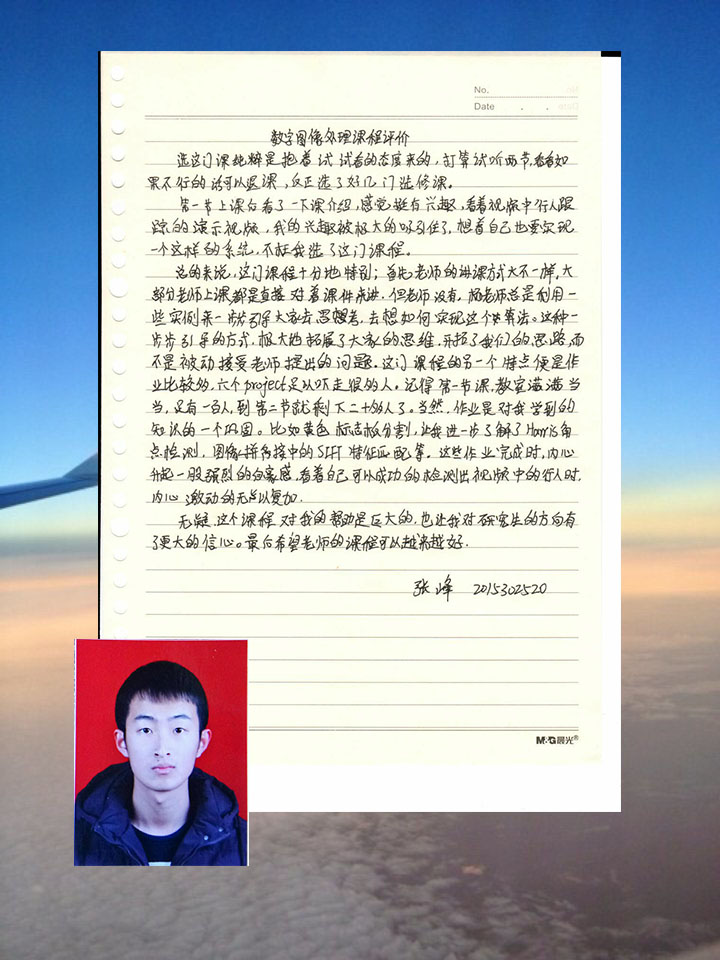 No.
Date . .
数字图像处理课程评价
选这门课纯粹是抱着试试看的态度来的，打算试听两节，看看如
果不行的话可以退课，反正选了好几门选修课。
第一节上课后看了一下课介绍，感觉挺有兴趣，看着视频中行人跟
踪的演示视频，我的兴趣被极大的吸引住了，想着自己也要实现
一个这样的系统，不枉我选了这门课程。
总的来说，这门课程十分地特别；首先老师的讲课方式大不一样，大
部分老师上课都是直接对着课件来讲，但老师没有，老师总是利用一
些实例来一步步引导大家去思想考，去想如何实现这个算法。这种一
步步引导的方式，极大地拓展了大家的思维，开拓了我们的思路，而
不是被动接受老师提出的问题。这门课程的另一个特点便是作
业比较多，六个project足以吓走很多人。记得第一节课，教室满满当
当，足有一百人，到第二节就剩下二十多人了。当然，作业是对我学到的
知识的一个巩固。比如黄色标志板分割，让我进一步了解了Harris角
点检测，图像拼接中的SIFT特征匹配等。这些作业完成时，内心
升起一股强烈的自豪感，看着自己可以成功的检测出视频中的行人时，
内心激动的无以复加.
无疑，这个课程对我的帮助是巨大的，也让我对研究生的方向有
了更大的信心。最后希望老师的课程可以越来越好.
张峰 2015302520
M&G晨光®